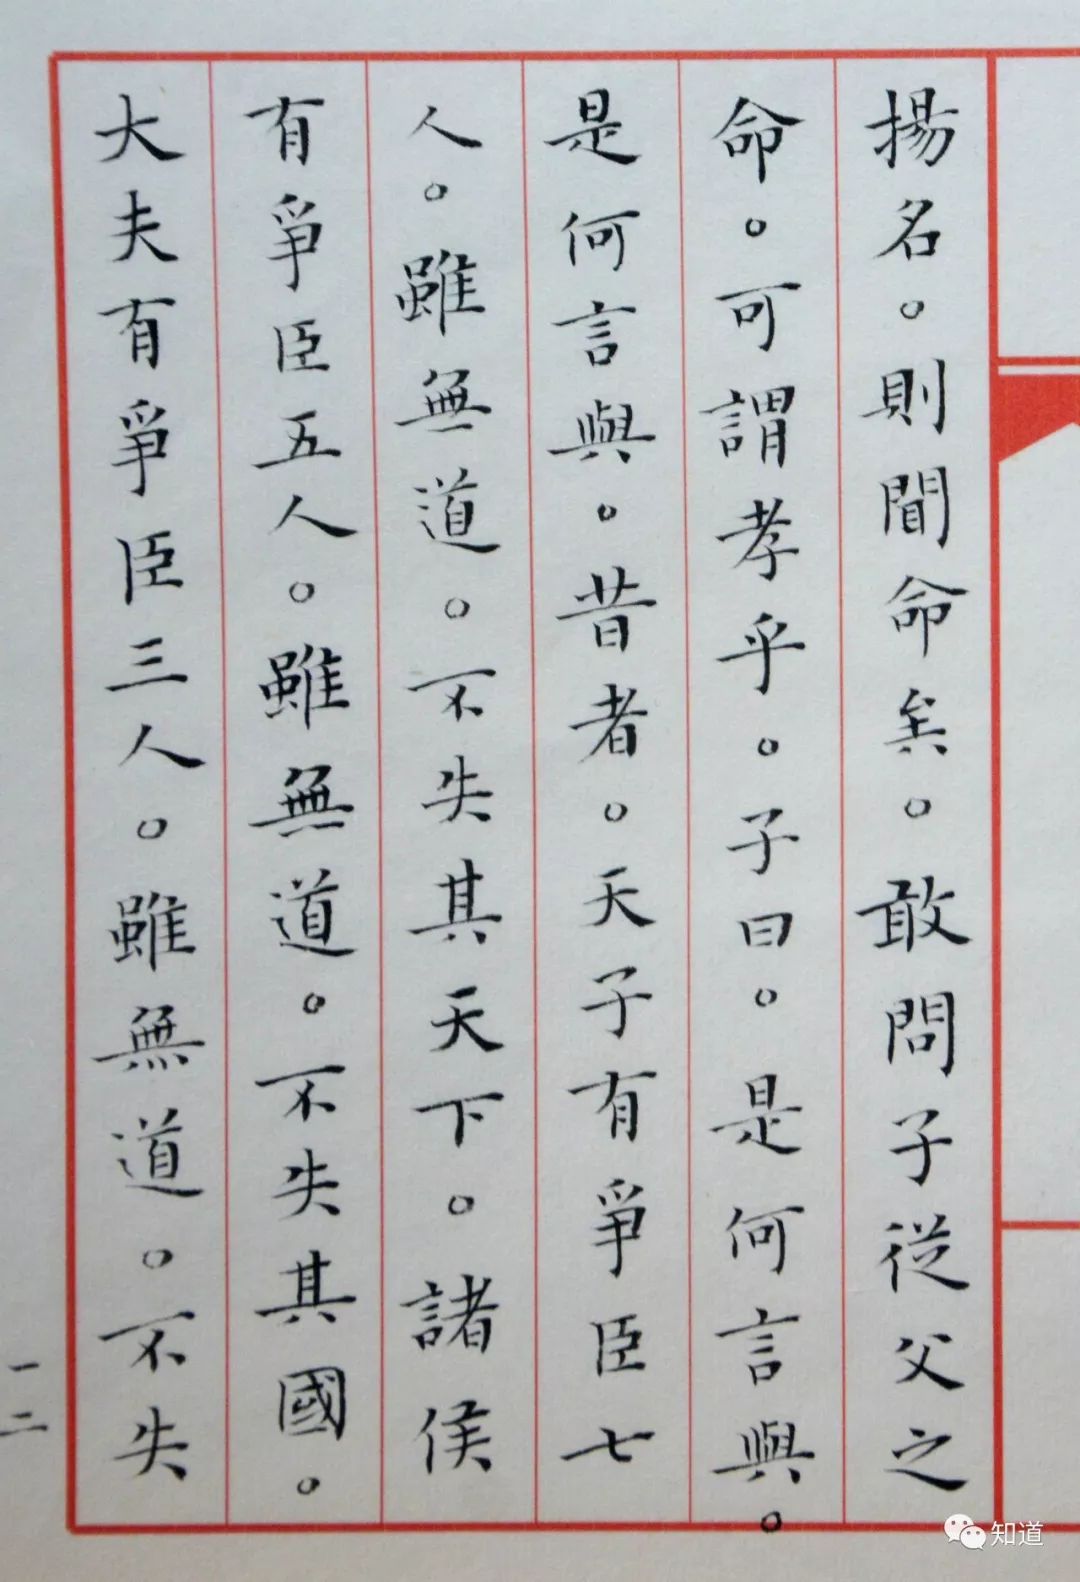 揚名。則聞命矣。敢問子從父之
命。可謂孝乎。子曰。是何言與。
是何言與。昔者。天子有爭臣七
人。雖無道。不失其天下。諸侯
有爭臣五人。雖無道。不失其國。
大夫有爭臣三人。雖無道。不失
一二
知道